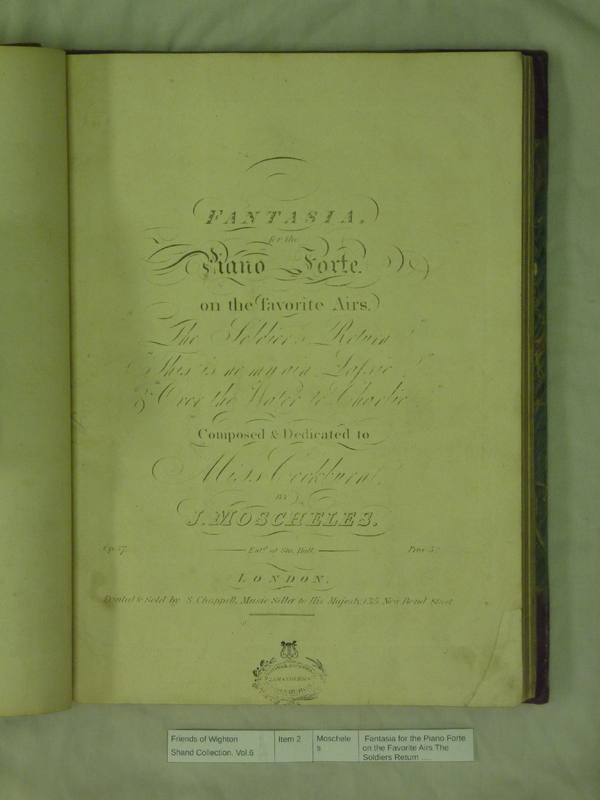 FANTASIA,
for the
Piano Forte.
on the favorite Airs,
The Soldier's Return
"This is no my ain Lassie"
& "Over the Water to Charlie"
Composed & Dedicated to
Miss Cockburn,
BY
J. MOSCHELES.
Entd. at Sta. Hall. Price
LONDON,
Printed & Sold by S. Chappell, Music Seller to His Majesty, 135 New Bond Street.
Friends of Wighton
Shand Collection. Vol.6
Item 2
Moschele
s
Fantasia for the Piano Forte
on the Favorite Airs The
Soldiers Return .....